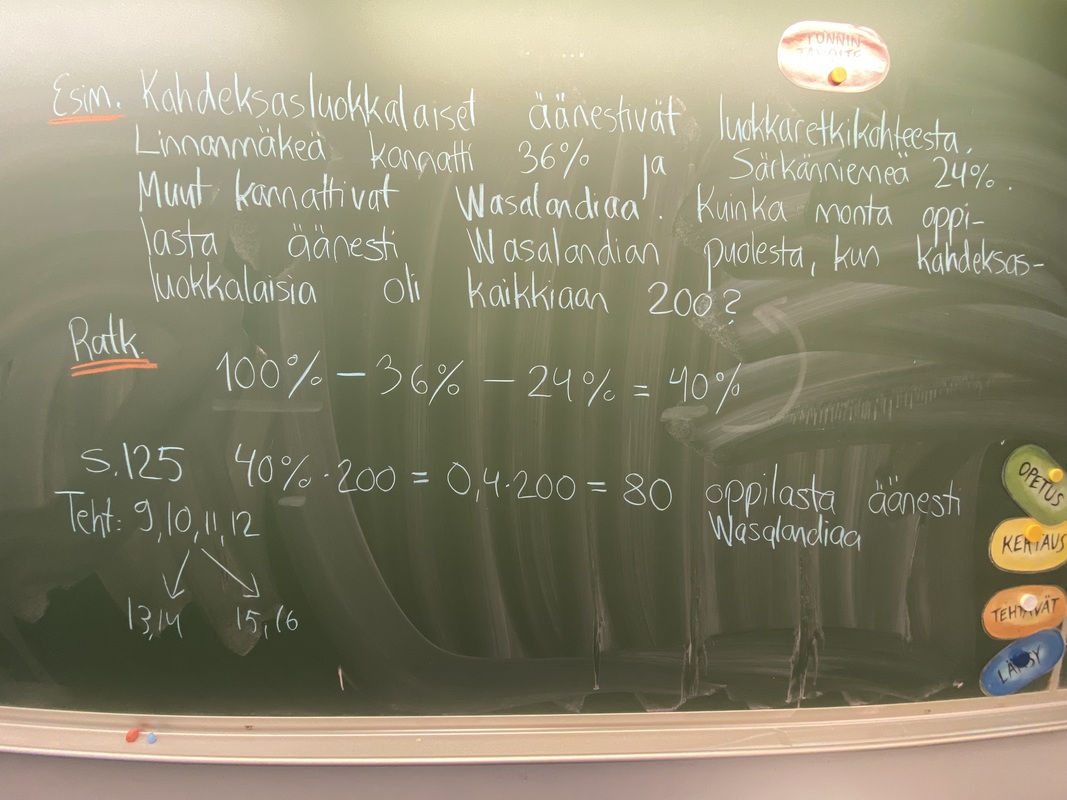 TUNNIN
TAVOITE
Esim. Kahdeksasluokkalaiset äänestivät luokkaretkikohteesta.
Linnanmäkeä kannatti 36% ja Särkänniemeä 24%.
Muut kannattivat Wasalandiaa. Kuinka monta oppi-
lasta äänesti Wasalandian puolesta, kun kahdeksas-
luokkalaisia oli kaikkiaan 200?
Ratk.
100% - 36% - 24% = 40%
s.125 40% · 200 = 0,4 · 200 = 80 oppilasta äänesti
Wasalandiaa
Teht: 9,10,11,12
13,14 15,16
OPETUS
KERTAUS
TEHTÄVÄT
LÄKSY